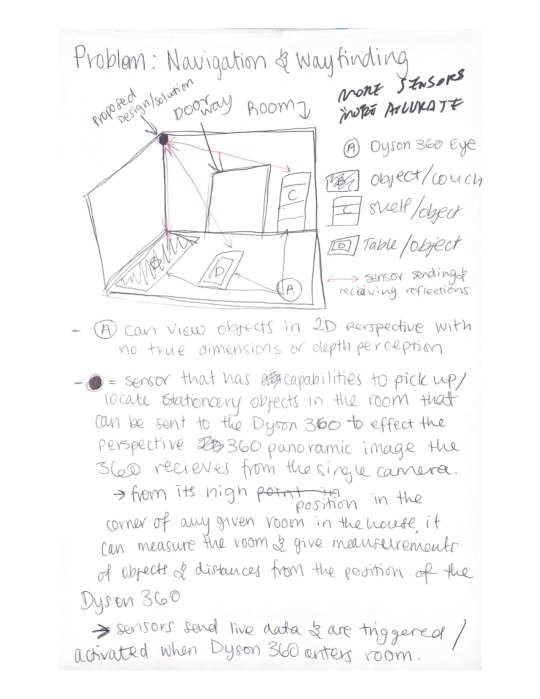 Problem: Navigation & Wayfinding
Proposed
design/solution
Doorway
Room
MORE SENSORS
MORE ACCURATE
A Dyson 360 Eye
B object/couch
C shelf/object
D Table/object
sensor sending &
recieving reflections
C
B
D
A
- A can view objects in 2D perspective with
no true dimensions or depth perception
- = sensor that has capabilities to pick up/
locate stationery objects in the room that
can be sent to the Dyson 360 to effect the
perspective 360 panoramic image the
360 recieves from the single camera.
→ from its high point in position in the
corner of any given room in the house, it
can measure the room & give measurements
of objects & distances from the position of the
Dyson 360
→ sensors send live data & are triggered /
activated when Dyson 360 enters room.